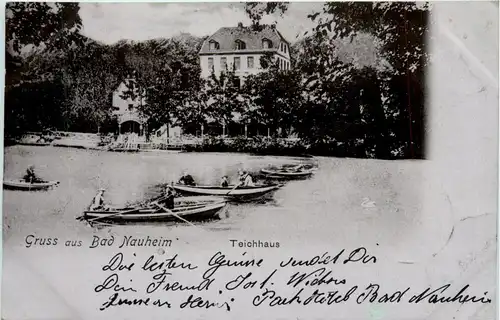 Gruss aus Bad Nauheim
Teichhaus
Die besten Grüsse sendet Dir
Dein Freund Jost. Wichers
Park Hotel Bad Nauheim